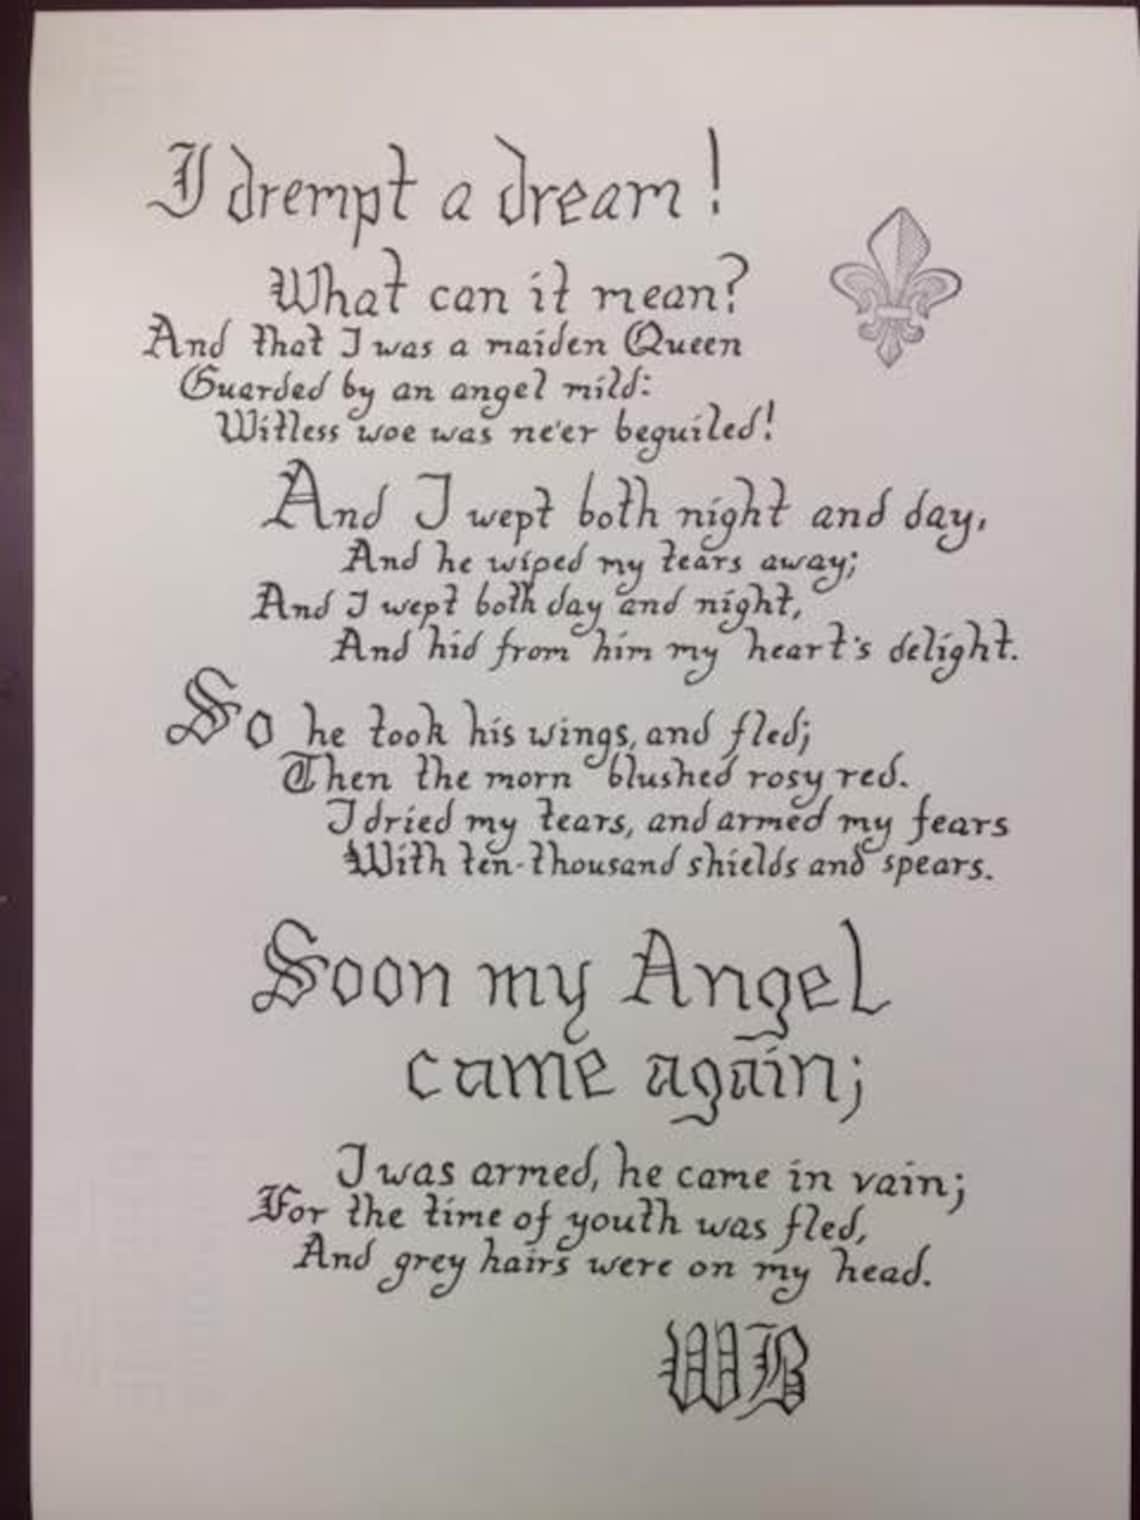 I drempt a dream!
What can it mean?
And that I was a maiden Queen
Guarded by an angel mild:
Witless woe was ne'er beguiled!
And I wept both night and day,
And he wiped my tears away;
And I wept both day and night,
And hid from him my heart's delight.
So he took his wings, and fled;
Then the morn blushed rosy red.
I dried my tears, and armed my fears
With ten-thousand shields and spears.
Soon my Angel
came again;
I was armed, he came in vain;
For the time of youth was fled,
And grey hairs were on my head.
WB